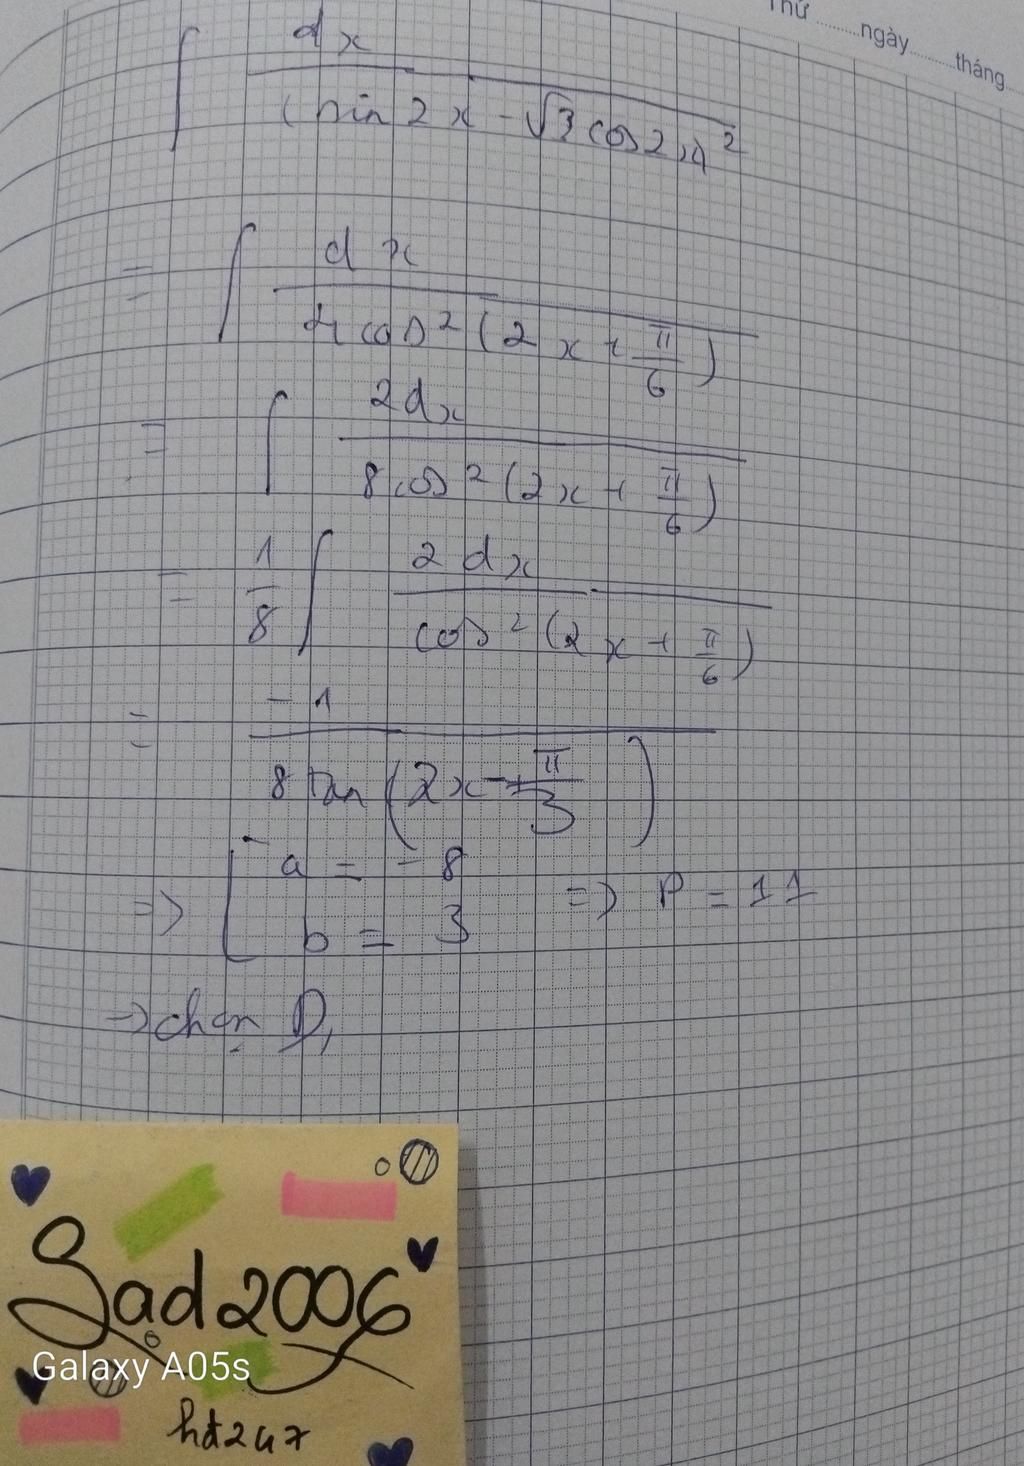 Thứ ........ngày........tháng
∫ dx / (sin 2x - √3 cos 2x)²
= ∫ dx / 4 cos² (2x + π/6)
= ∫ 2dx / 8 cos² (2x + π/6)
= 1/8 ∫ 2 dx / cos² (2x + π/6)
= -1 / 8 tan (2x - π/3)
=> [ a = - 8
b = 3 => P = 11
-> chọn D,
Sad2006
Galaxy A05s
hd247